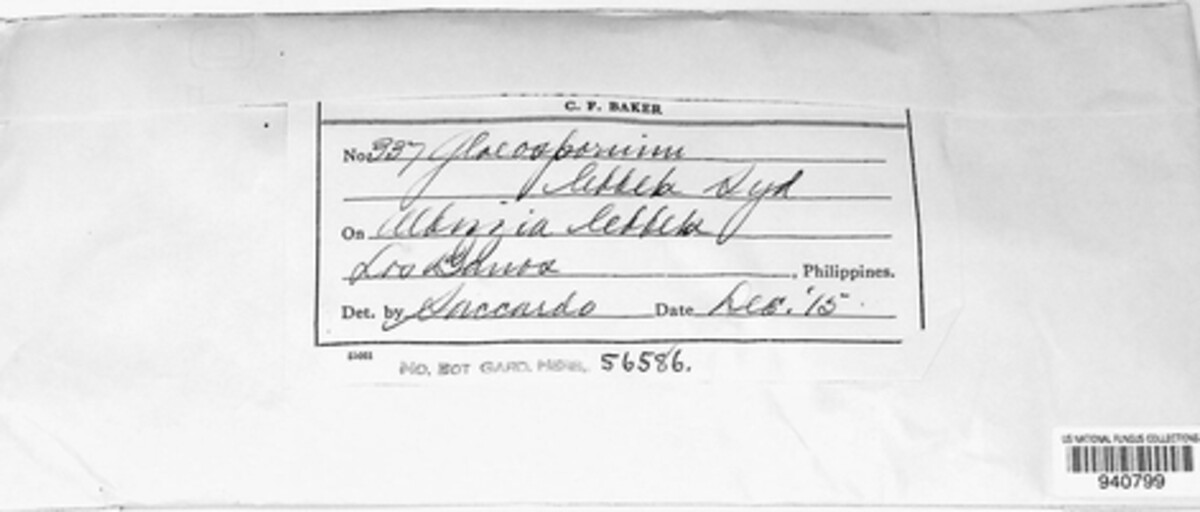 C. F. BAKER
No. 337 Gloeosporium
lebbek Syd
On Albizzia lebbek
Los Banos, Philippines.
Det. by Saccardo Date Dec. '15
MO. BOT GARD. HERB. 56586.
US NATIONAL FUNGUS COLLECTIONS
940799